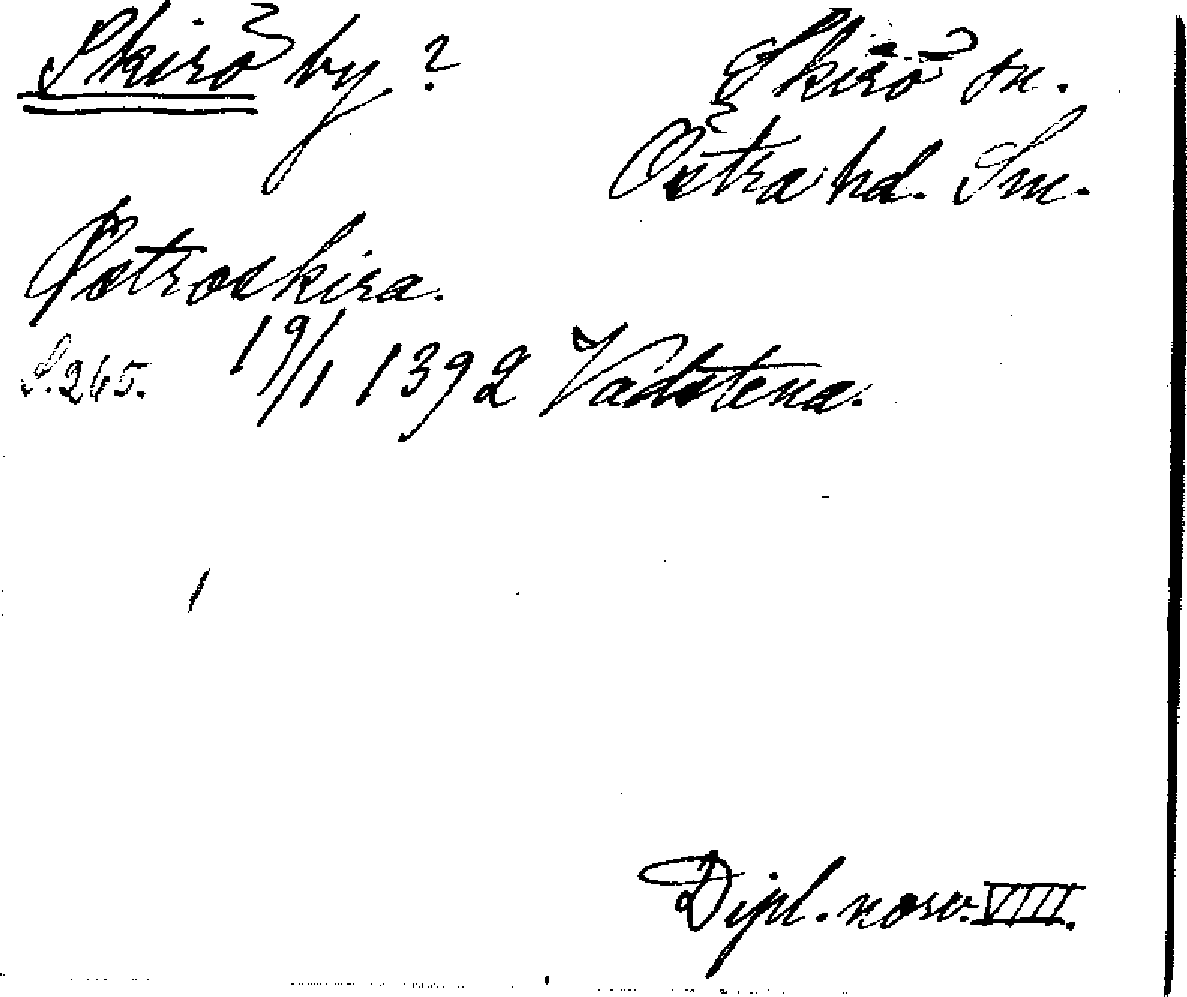 Skirö by?
Skirö sn.
Östra hd. Sm.
Østroskira.
S. 265. 19/1 1392 Vadstena.
Dipl. norv. VIII.